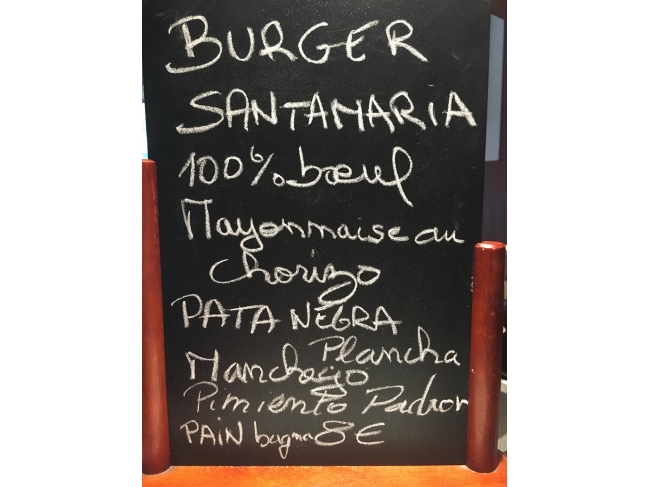 BURGER
SANTAMARIA
100% bœuf
Mayonnaise au
chorizo
PATA NEGRA
Plancha
Manchego
Pimiento Padron
PAIN bagna 8€